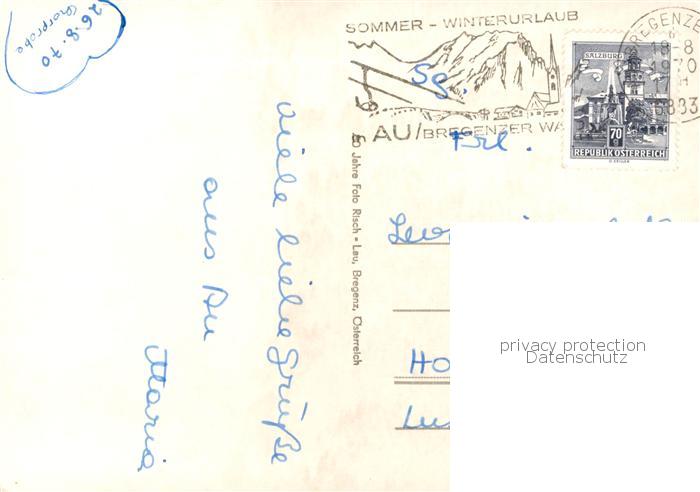 26.8.70
Chorprobe
SOMMER - WINTERURLAUB
AU/BREGENZER WA
BREGENZE
18-8
1970
6883
SALZBURG
70
REPUBLIK ÖSTERREICH
Sg.
Frl.
HO
Lu
viele liebe Grüße
aus Au
Maria
50 Jahre Foto Risch - Lau, Bregenz, Österreich
privacy protection
Datenschutz